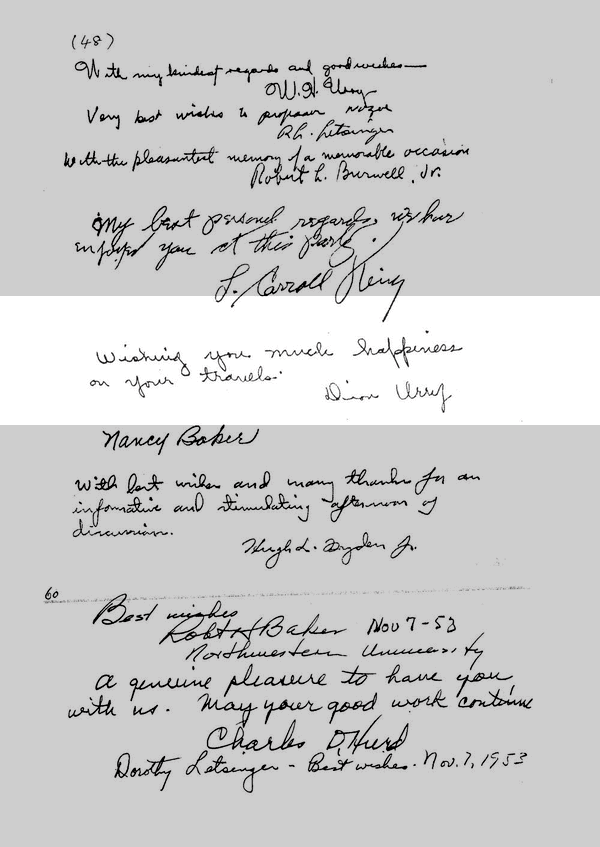 (48)
With my kindest regards and good wishes—
W. H. Urry
Very best wishes to professor Nozoe
R. L. Letsinger
With the pleasantest memory of a memorable occasion
Robert L. Burwell, Jr.
My best personal regards, we have
enjoyed you at this party.
L. Carroll King
Wishing you much happiness
on your travels.
Dion Urry
Nancy Baker
With best wishes and many thanks for an
informative and stimulating afternoon of
discussion.
Hugh L. Dryden Jr.
60
Best wishes
Robt H Baker Nov 7-53
Northwestern University
A genuine pleasure to have you
with us. May your good work continue
Charles D. Hurd
Dorothy Letsinger - Best wishes. Nov. 7, 1953